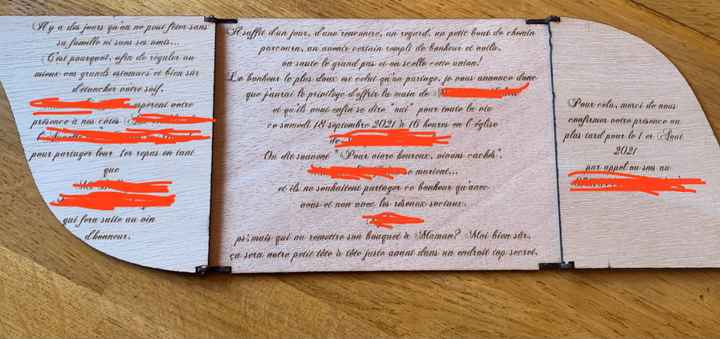 Il y a des jours qu'on ne peut fêter sans
sa famille ni sans ses amis...
C'est pourquoi, afin de régaler au
mieux vos grands estomacs et bien sûr
d'étancher votre soif,
espèrent votre
présence à nos côtés
pour partager leur 1er repas en tant
que
qui fera suite au vin
d'honneur.
Il suffit d'un jour, d'une rencontre, un regard, un petit bout de chemin
parcouru, un avenir certain rempli de bonheur et voilà,
on saute le grand pas et on scelle cette union!
Le bonheur le plus doux est celui qu'on partage, je vous annonce donc
que j'aurai le privilège d'offrir la main de
et qu'ils vont enfin se dire "oui" pour toute la vie
ce samedi 18 septembre 2021 à 16 heures en l'église
de
On dit souvent "Pour vivre heureux, vivons cachés".
se marient...
et ils ne souhaitent partager ce bonheur qu'avec
vous et non avec les réseaux sociaux.
ps: mais qui va remettre son bouquet à Maman? Moi bien sûr,
ça sera notre petit tête à tête juste avant dans un endroit top secret.
Pour cela, merci de nous
confirmer votre présence au
plus tard pour le 1 er Août
2021
par appel ou sms au